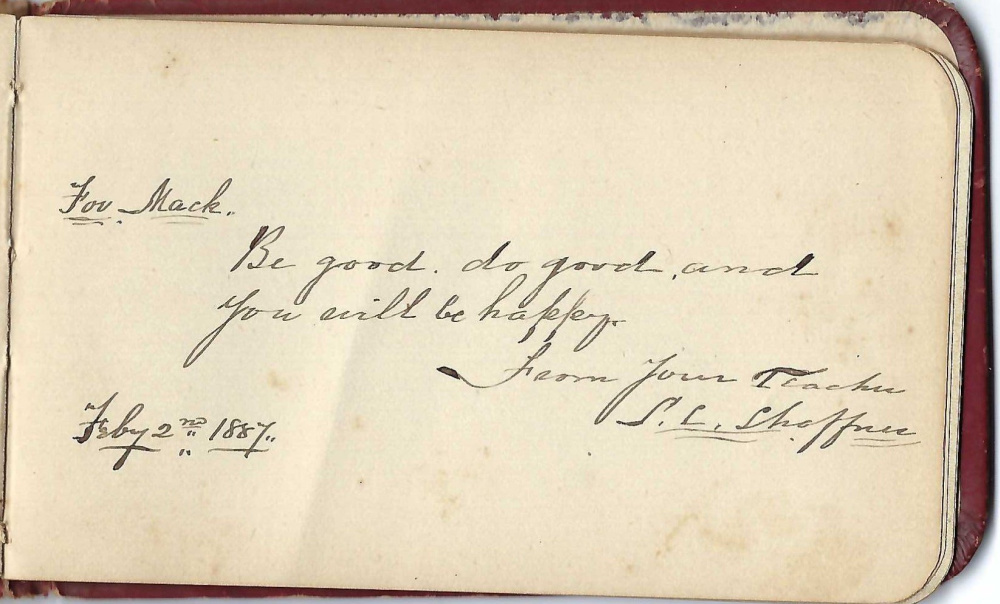 For Mack.
Be good. do good, and
you will be happy.
From Your Teacher
S. L. Shaffner
Feby 2nd 1887.